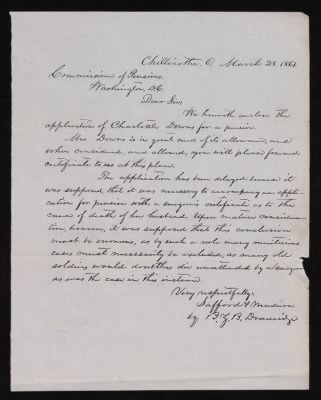 Chillicothe, O. March 28. 1861
Commissioner of Pensions
Washington, D.C.
Dear Sir,
We herewith enclose the
application of Charlotte Downs for a pension.
Mrs Downs is in great need of its allowance, and
when considered, and allowed, you will please forward
certificate to us at this place.
The application has been delayed because it
was supposed, that it was necessary to accompany an appli-
cation for pension with a surgeon's certificate as to the
cause of death of her husband. Upon mature considera-
tion, however, it was supposed that this conclusion
must be erroneous, as by such a rule many meritorious
cases must necessarily be excluded, as many old
soldiers would doubtless die unattended by a surgeon
as was the case in this instance.
Very respectfully,
Safford & Madeira
by B. F. B. Doddridge